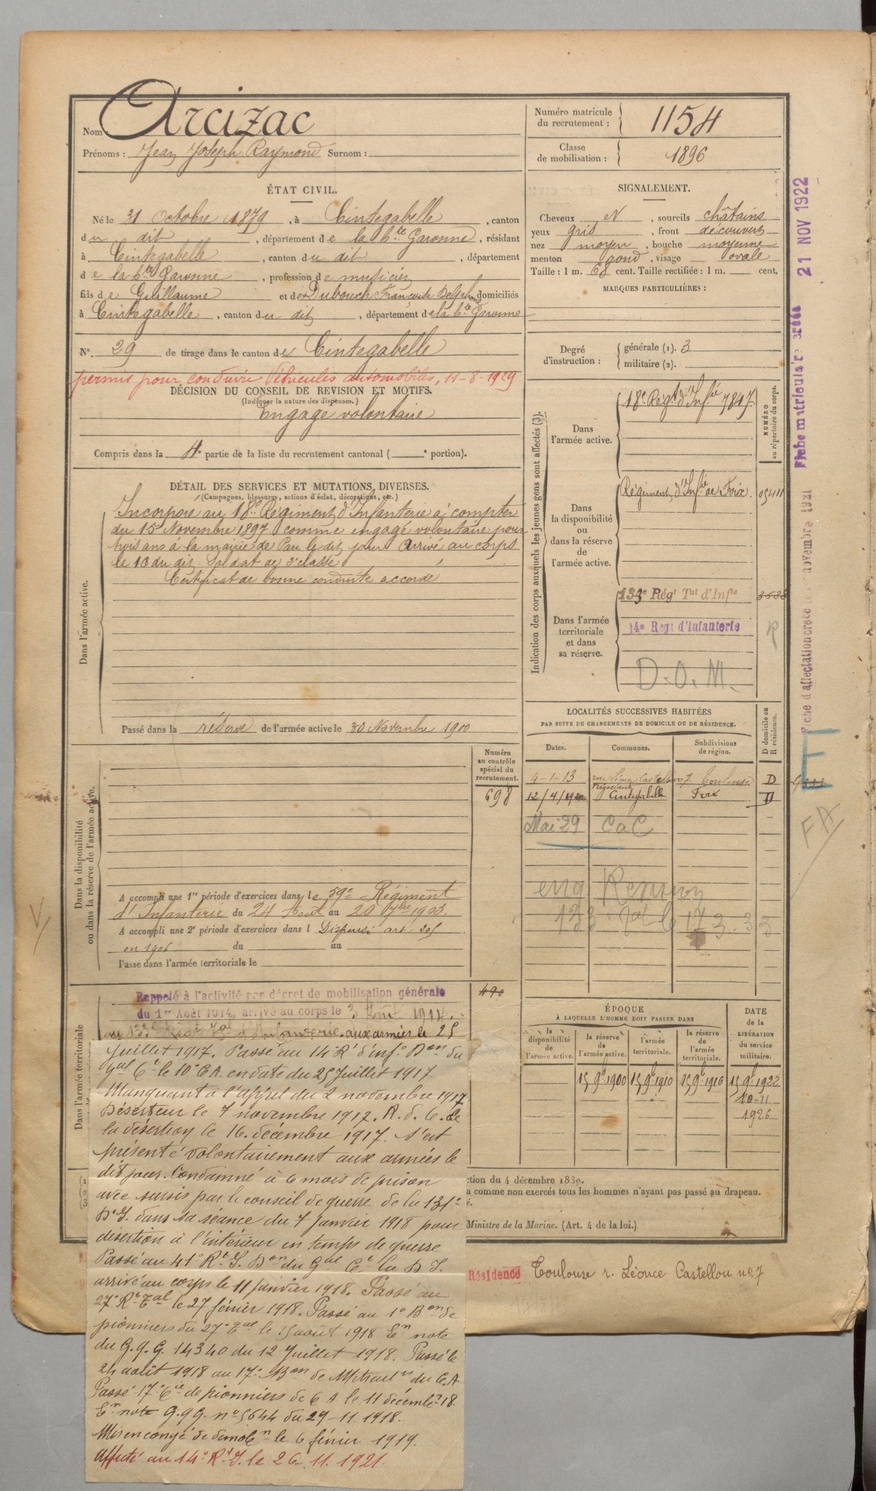 Nom Arcizac
Prénoms : Jean Joseph Raymond Surnom :
Numéro matricule du recrutement : 1154
Classe de mobilisation : 1896
ÉTAT CIVIL.
Né le 31 Octobre 1879, à Cintegabelle, canton
du dit, département de la Hte Garonne, résidant
à Cintegabelle, canton du dit, département
de la Hte Garonne, profession de musicien
fils de Guillaume et de Dubouch Françoise domiciliés
à Cintegabelle, canton du dit, département de la Hte Garonne
N° 29 de tirage dans le canton de Cintegabelle
permis pour conduire Véhicules automobiles, 11-8-1929
DÉCISION DU CONSEIL DE REVISION ET MOTIFS.
(Indiquer la nature des dispenses.)
Engagé volontaire
Compris dans la 4e partie de la liste du recrutement cantonal ( portion).
SIGNALEMENT.
Cheveux , sourcils châtains
yeux gris, front découvert
nez moyen, bouche moyenne
menton rond, visage ovale
Taille : 1 m. 68 cent. Taille rectifiée : 1 m. cent.
MARQUES PARTICULIÈRES :
Degré d'instruction :
générale (1). 3
militaire (2).
DÉTAIL DES SERVICES ET MUTATIONS DIVERSES.
(Campagnes, blessures, actions d'éclat, décorations, etc.)
Dans l'armée active.
Incorporé au 18e Régiment d'Infanterie à compter
du 15 Novembre 1897 comme engagé volontaire pour
trois ans à la mairie de Pau le dit jour Arrivé au corps
le 10 du dit. Soldat de 2e classe
Certificat de bonne conduite accordé
Passé dans la réserve de l'armée active le 30 Novembre 1900
Indication des corps auxquels les jeunes gens sont affectés (3).
NUMÉRO au répertoire du corps.
Dans l'armée active.
18e Régt d'Infie 7817
Dans la disponibilité ou dans la réserve de l'armée active.
Régiment d'Infie de Foix.
Dans l'armée territoriale et dans sa réserve.
133e Régt Tal d'Infie
14e Regt d'Infanterie
R
D.O.M.
LOCALITÉS SUCCESSIVES HABITÉES
PAR SUITE DE CHANGEMENTS DE DOMICILE OU DE RÉSIDENCE.
D domicile ou R résidence.
Dates. Communes. Subdivisions de région.
4-1-13 Toulouse D
12/4/1920 Cintegabelle Foix D
Mai 29 CaC
Dans la disponibilité ou dans la réserve de l'armée active.
Numéro au contrôle spécial du recrutement.
698
A accompli une 1re période d'exercices dans le 59e Régiment
d'Infanterie du 24 Août au 20 7bre 1903
A accompli une 2e période d'exercices dans l Dispensé art.
en 1906 du au
Passé dans l'armée territoriale le
Dans l'armée territoriale
Rappelé à l'activité par décret de mobilisation générale
du 1er Août 1914, arrivé au corps le 3 Août 1914.
aux armées le 25
Juillet 1917. Passé au 14 Rt d'Infie Don du
Gal Ct le 10e C.A. en date du 25 Juillet 1917.
Manquant à l'appel du 2 novembre 1917
Déserteur le 7 novembre 1917. R. d. C. de
la désertion le 16 décembre 1917. S'est
présenté volontairement aux armées le
dit jour. Condamné à 6 mois de prison
avec sursis par le conseil de guerre de la 131e
D.I. dans sa séance du 7 Janvier 1918 pour
désertion à l'intérieur en temps de guerre
Passé au 41e Rt I. Don du Gal Ct la D.I.
arrivé au corps le 11 janvier 1918. Passé au
27e Rt Tal le 27 février 1918. Passé au 1e Bon de
pionniers du 27e Tal le 15 août 1918 En note
du G.Q.G 14340 du 12 Juillet 1918. Passé le
24 août 1918 au 17e Bon de Mitrail du C.A
Passé 17e Cie de pionniers de C A le 11 décembre 18.
En note G.Q.G. n° 5644 du 29-11-1918.
Mis en congé de démob le 6 février 1919.
Affecté au 14e Rt I. le 26.11.1921.
ÉPOQUE
À LAQUELLE L'HOMME DOIT PASSER DANS
DATE de la LIBÉRATION du service militaire.
la disponibilité de l'armée active.
la réserve de l'armée active.
l'armée territoriale.
la réserve de l'armée territoriale.
15 9e 1900 15 9e 1910 15 9e 1916 15 9e 1922
10-11
1926
ction du 4 décembre 1889.
a comme non exercés tous les hommes n'ayant pas passé au drapeau.
Ministre de la Marine. (Art. 4 de la loi.)
Résidence Toulouse r. Léonce Castellou n° 7
Fiche matriculaire créée 21 NOV 1922
Fiche d'affectation créée novembre 1921
FA